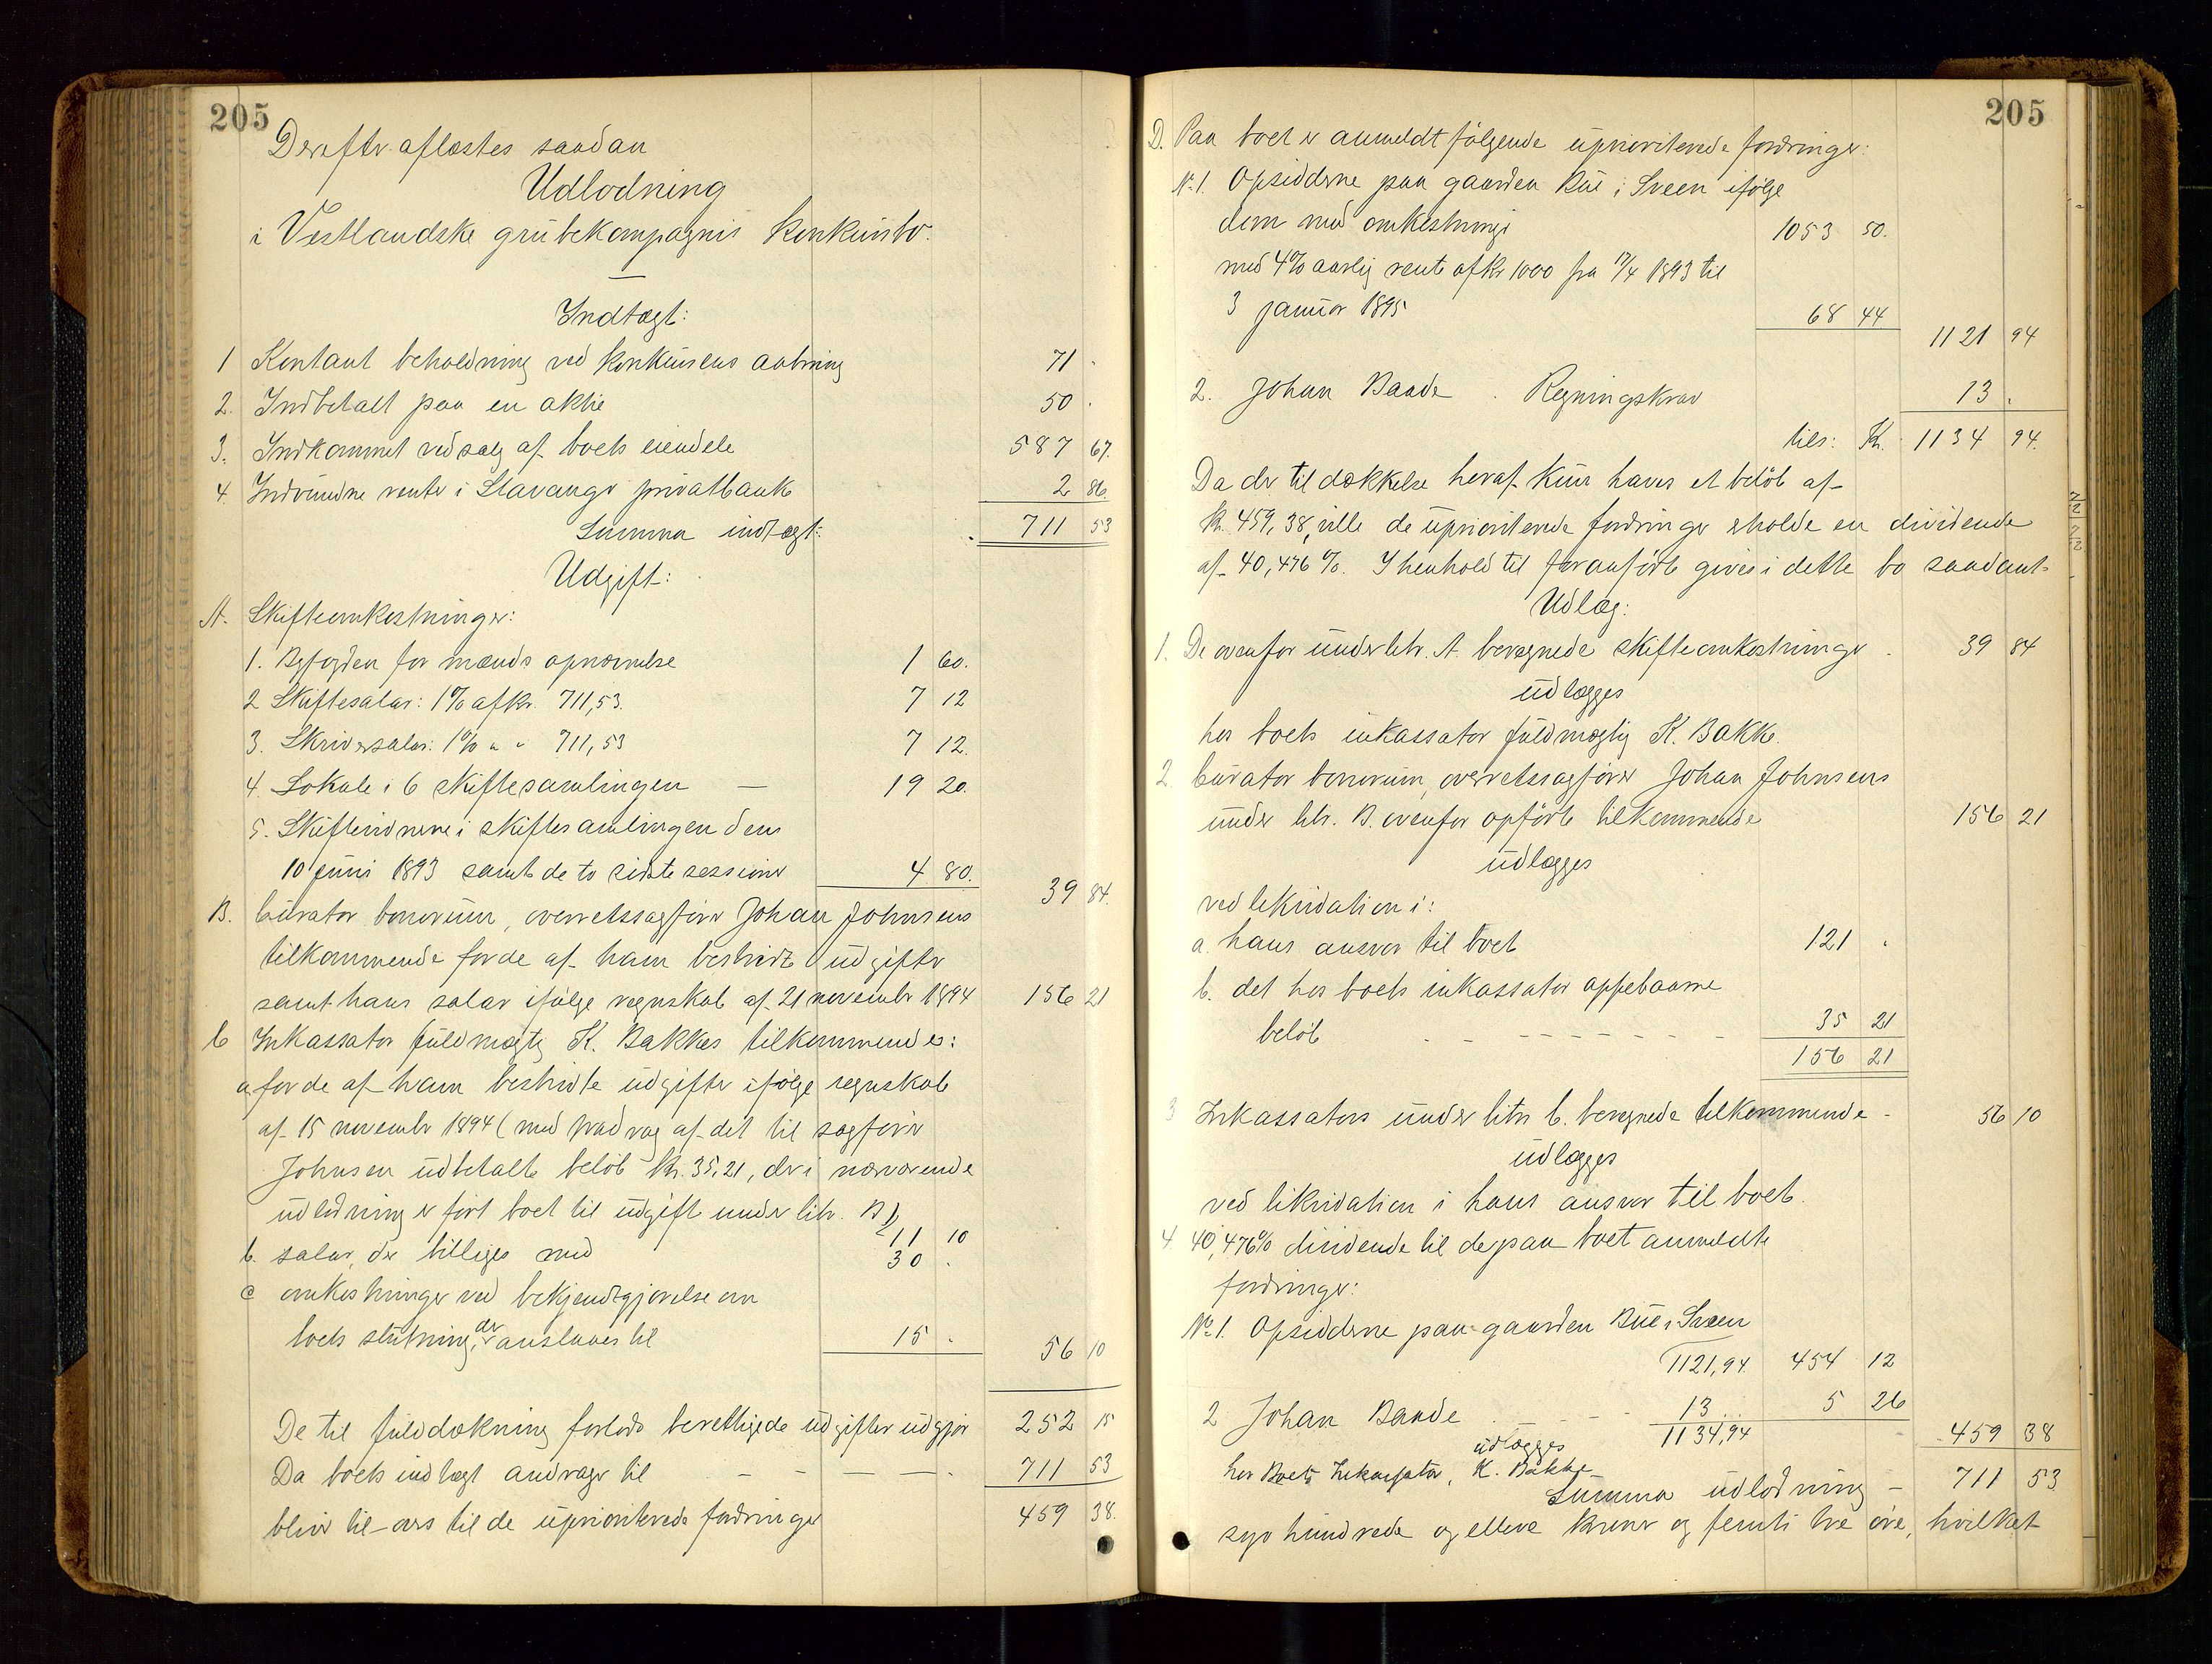 205
Derefter aflæstes saadan
Udlodning
i Vestlandske grubekompagnis konkursbo.
Indtægt:
1 Kontant beholdning ved konkursens aabning 71 .
2. Indbetalt paa en aktie 50 .
3. Indkommet ved salg af boets eiendele 587 67.
4. Indvundne renter i Stavanger privatbank 2 86.
Summa indtægt: 711 53
Udgift:
A. Skifteomkostninger:
1. Byfogden for mænds opnævnelse 1 60.
2 Skiftesalær: 1% af kr. 711,53. 7 12
3. Skriversalær: 1% " " 711,53 7 12.
4. Lokale i 6 skiftesamlingen — 19 20.
5. Skiftevidnerne i skiftesamlingen den
10 juni 1893 samt de to sidste sessioner 4 80. 39 84.
B. Curator bonorum, overretssagfører Johan Johnsens
tilkommende for de af ham bestridte udgifter
samt hans salær ifølge regnskab af 21 november 1894 156 21
C Inkassator fuldmægtig K. Bakkes tilkommende:
a for de af ham bestridte udgifter ifølge regnskab
af 15 november 1894 (med fradrag af det til sagfører
Johnsen udbetalte beløb kr. 35,21, der i nærværende
udlodning er ført boet til udgift under litr. B) 11 10
b. salær, der billiges med 30 .
c omkostninger ved bekjendtgjørelse om
boets slutning, der anslaaes til 15 . 56 10
De til fulddækning forlods berettigede udgifter udgjør 252 15
Da boets indtægt andrager til — — — — . 711 53
bliver til-overs til de uprioriterede fordringer 459 38.
205
D. Paa boet er anmeldt følgende uprioriterede fordringer:
No. 1. Opsidderne paa gaarden Bue i Sveen ifølge
dom med omkostninger 1053 50.
med 4% aarlig rente af kr 1000 fra 17/4 1893 til
3 januar 1895 68 44 1121 94
2. Johan Baade . Regningskrav 13 .
tils: Kr. 1134 94.
Da der til dækkelse heraf kun haves et beløb af
kr. 459,38, ville de uprioriterede fordringer erholde en dividende
af 40,476%. I henhold til foranførte gives i dette bo saadant
Udlæg:
1. De ovenfor under litr. A. beregnede skifteomkostninger . 39 84
udlægges
hos boets inkassator fuldmægtig K. Bakke.
2 Curator bonorum, overretssagfører Johan Johnsens
under litr. B. ovenfor opførte tilkommende 156 21
udlægges
ved likvidation i:
a. hans ansvar til boet 121 .
b. det hos boets inkassator oppebaarne
beløb - - - - - - - - 35 21
156 21
3 Inkassators under litr C. beregnede tilkommende - 56 10
udlægges
ved likvidation i hans ansvar til boet.
4. 40,476% dividende til de paa boet anmeldte
fordringer:
No. 1. Opsidderne paa gaarden Bue i Sveen
1121,94. 454 12
2 Johan Baade - - - 13... 5 26
1134,94 459 38
udlægges
hos Boets Inkassator, K. Bakke
Summa udlodning - 711 53
syv hundrede og elleve kroner og femti tre øre, hvilket